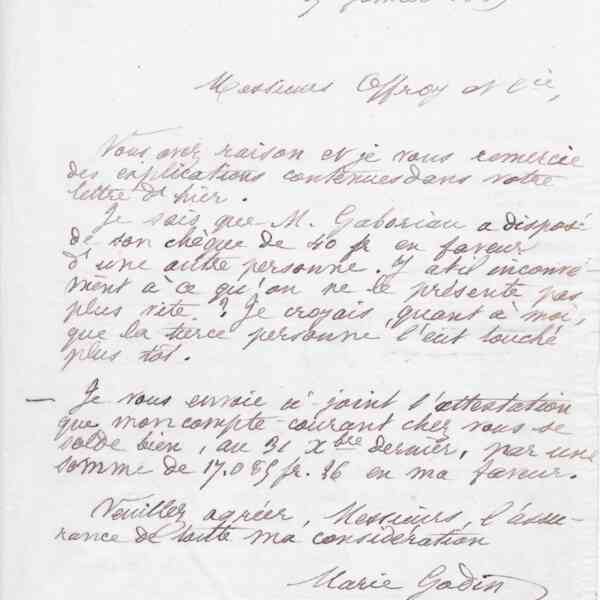 Messieurs Offroy et Cie,
Vous avez raison et je vous remercie
des explications contenues dans votre
lettre d'hier.
Je sais que M. Gaboriau a disposé
de son chèque de 40 fr en faveur
d'une autre personne. Y a t il inconvé-
nient à ce qu'on ne le présente pas
plus vite ? Je croyais, quant à moi,
que la tierce personne l'eût touché
plus tôt.
— Je vous envoie ci-joint l'attestation
que mon compte-courant chez vous se
solde bien, au 31 Xbre dernier, par une
somme de 17.085 fr. 26 en ma faveur.
Veuillez agréer, Messieurs, l'assu-
rance de toute ma considération
Marie Godin